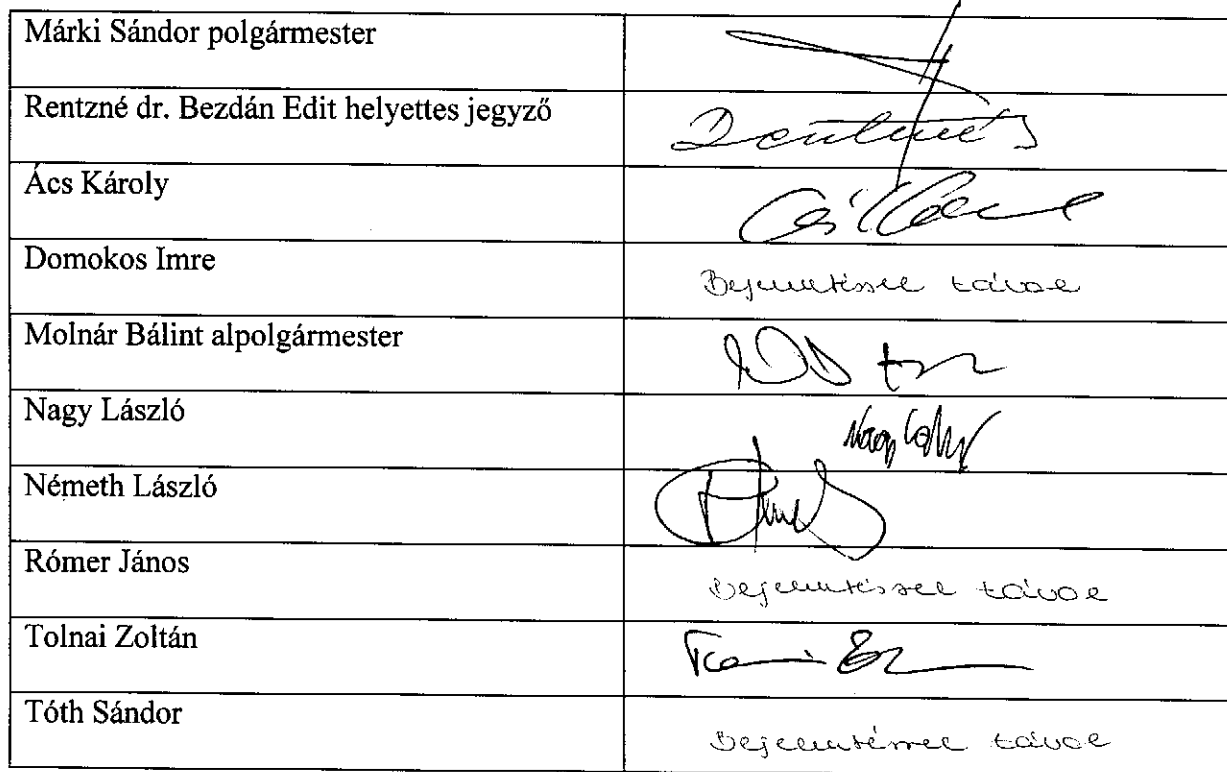 Márki Sándor polgármester
Rentzné dr. Bezdán Edit helyettes jegyző
Rentzné
Ács Károly
Domokos Imre
Bejelentéssel távol
Molnár Bálint alpolgármester
Nagy László
Nagy László
Németh László
Rómer János
Bejelentéssel távol
Tolnai Zoltán
Tóth Sándor
Bejelentéssel távol